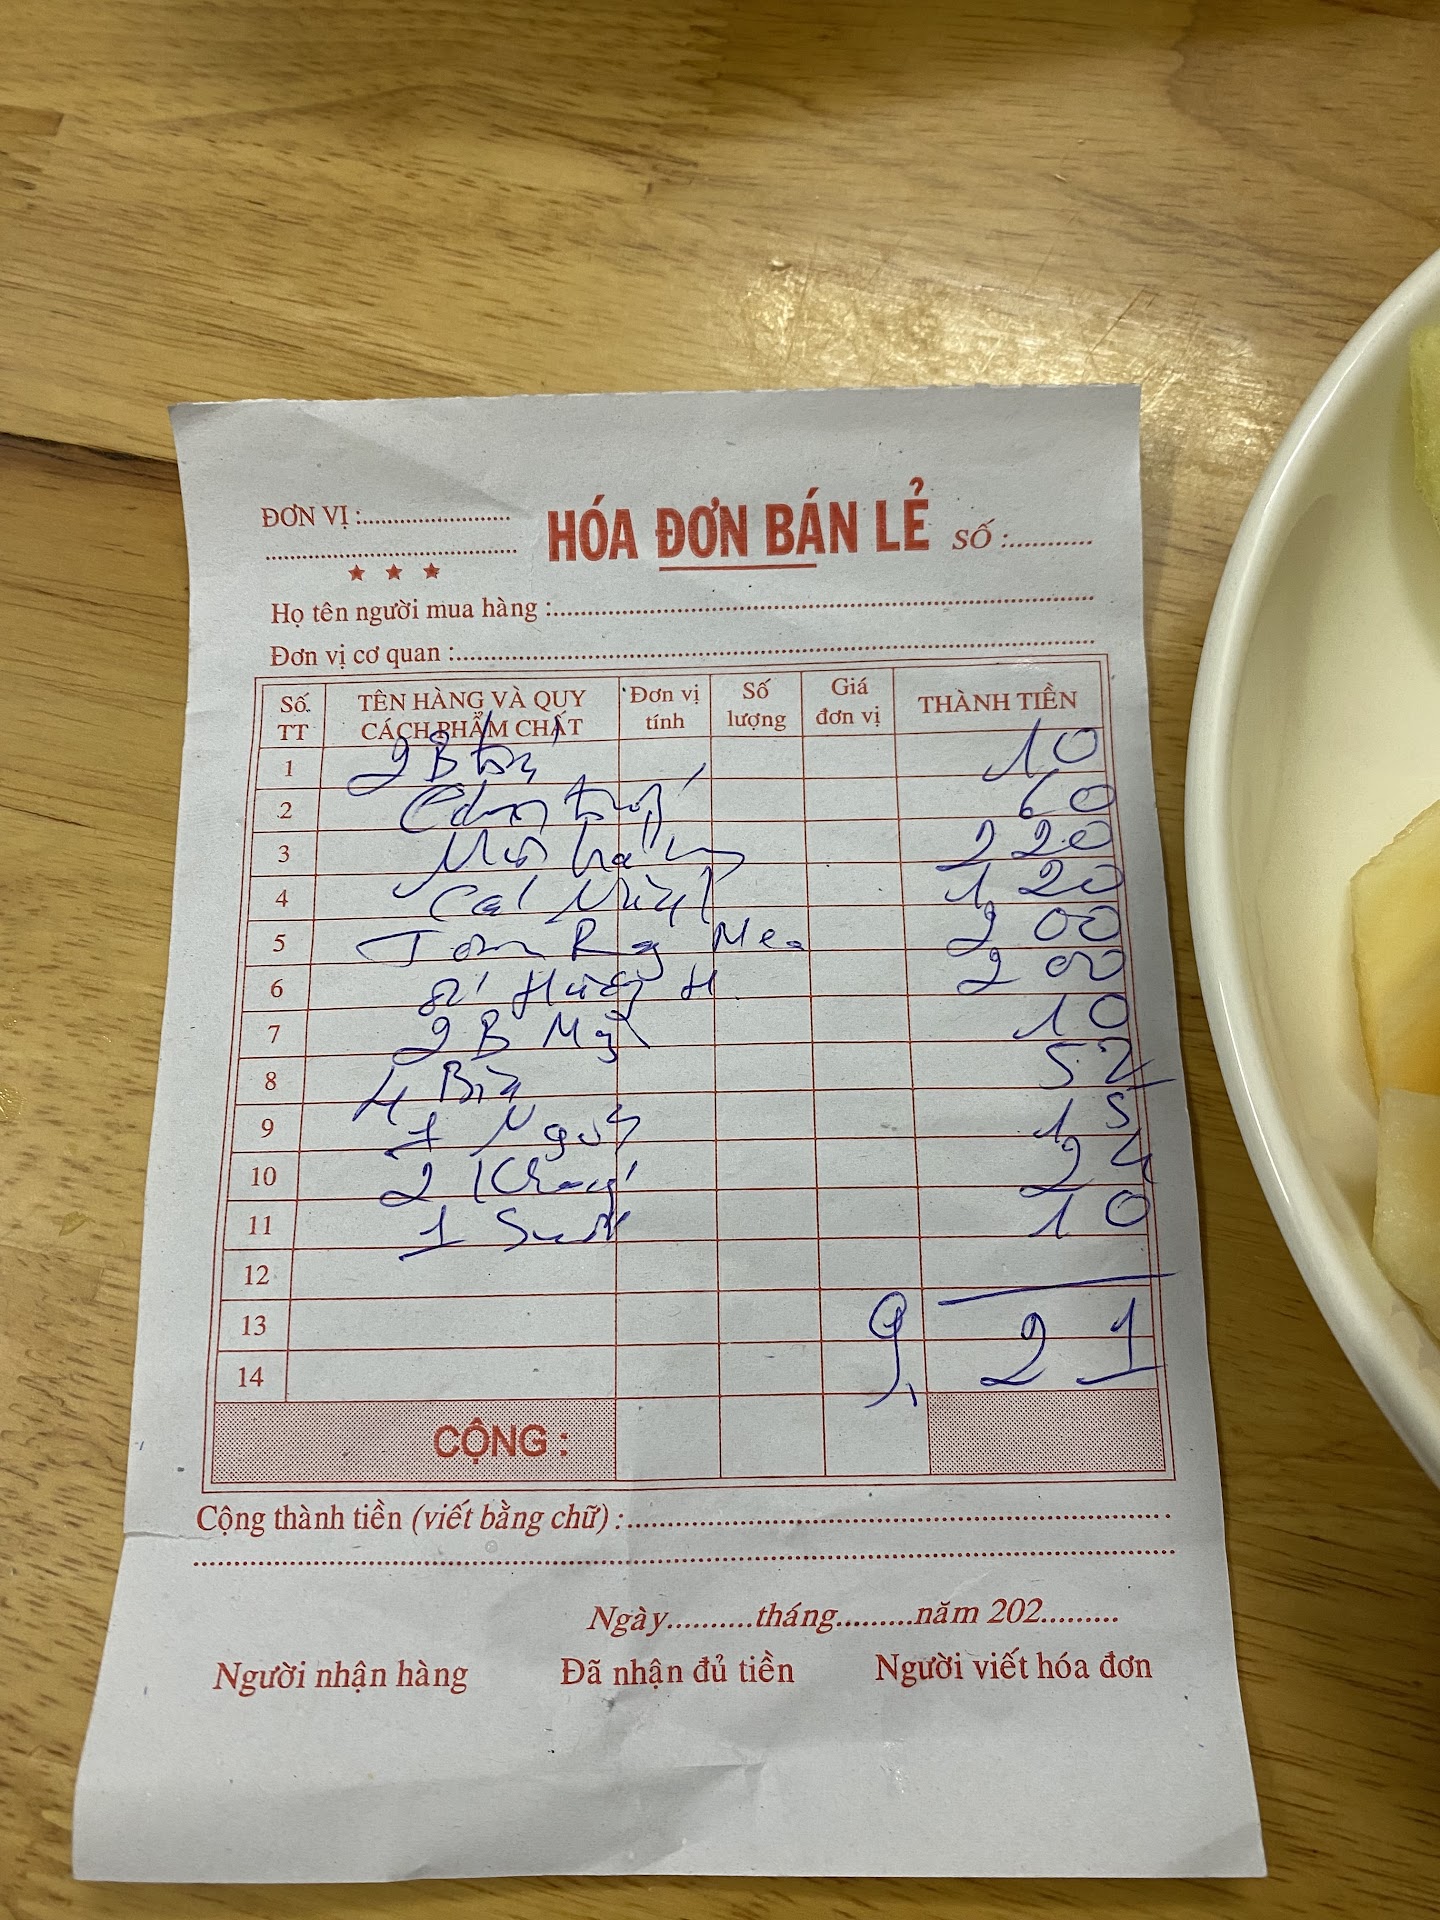 ĐƠN VỊ :
HÓA ĐƠN BÁN LẺ
SỐ :
★ ★ ★
Họ tên người mua hàng :
Đơn vị cơ quan :
Số TT TÊN HÀNG VÀ QUY CÁCH PHẨM CHẤT Đơn vị tính Số lượng Giá đơn vị THÀNH TIỀN
1 2 B 10
2 60
3 220
4 120
5 Tôm Rg Me 200
6 200
7 2 B Mỳ 10
8 4 Bia 52
9 1 15
10 2 24
11 1 Suối 10
12
13
14
9, 21
CỘNG :
Cộng thành tiền (viết bằng chữ) :
Ngày tháng năm 202
Người nhận hàng Đã nhận đủ tiền Người viết hóa đơn